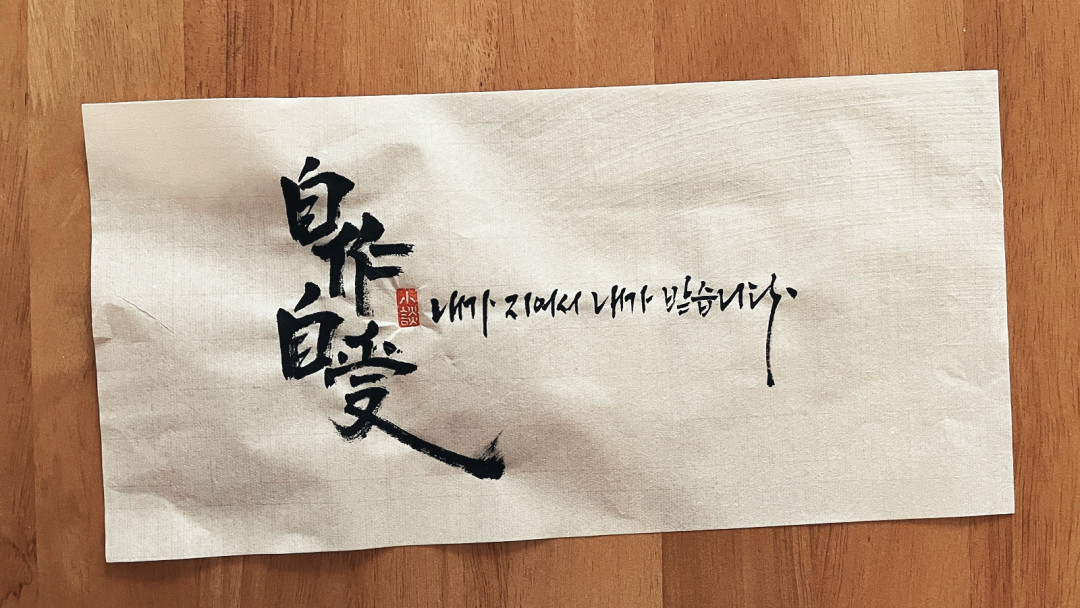 自作
自受
小談
내가 지어서 내가 받습니다.